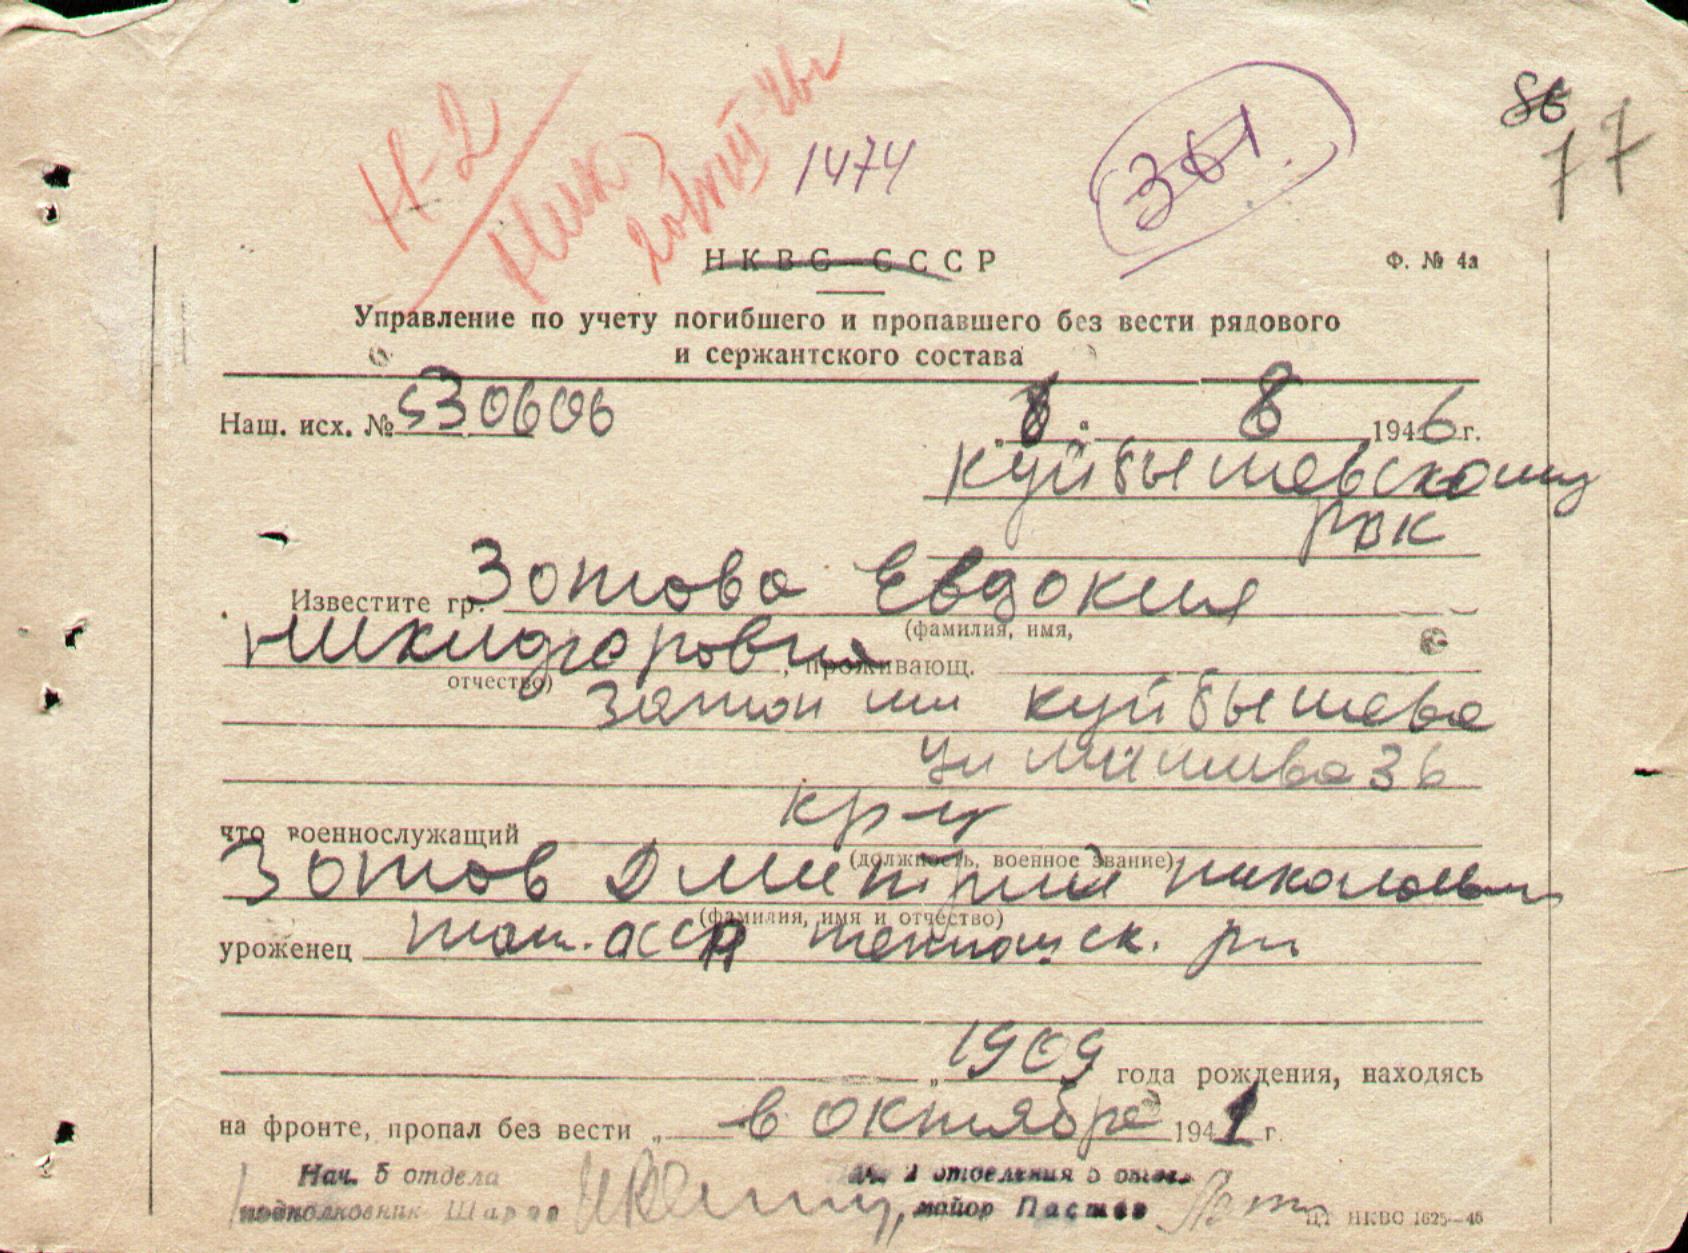 86
77
Н-2
1474
361
НКВС СССР
Ф. № 4а
Управление по учету погибшего и пропавшего без вести рядового
и сержантского состава
Наш. исх. № 530606
„8“ 8 1946 г.
Куйбышевскому
РВК
Известите гр. Зотова Евдокия
(фамилия, имя,
Никифоровна, проживающ.
отчество)
Затон им Куйбышева
ул 36
что военнослужащий кр-ц
(должность, военное звание)
Зотов Дмитрий Николаевич
(фамилия, имя и отчество)
уроженец тат. асср теньковск. рн
1909 года рождения, находясь
на фронте, пропал без вести „ в октябре 1941 г.
Нач. 5 отдела
подполковник
Нач. 2 отделения 5 отдела
майор
ЦТ НКВС 1625—45